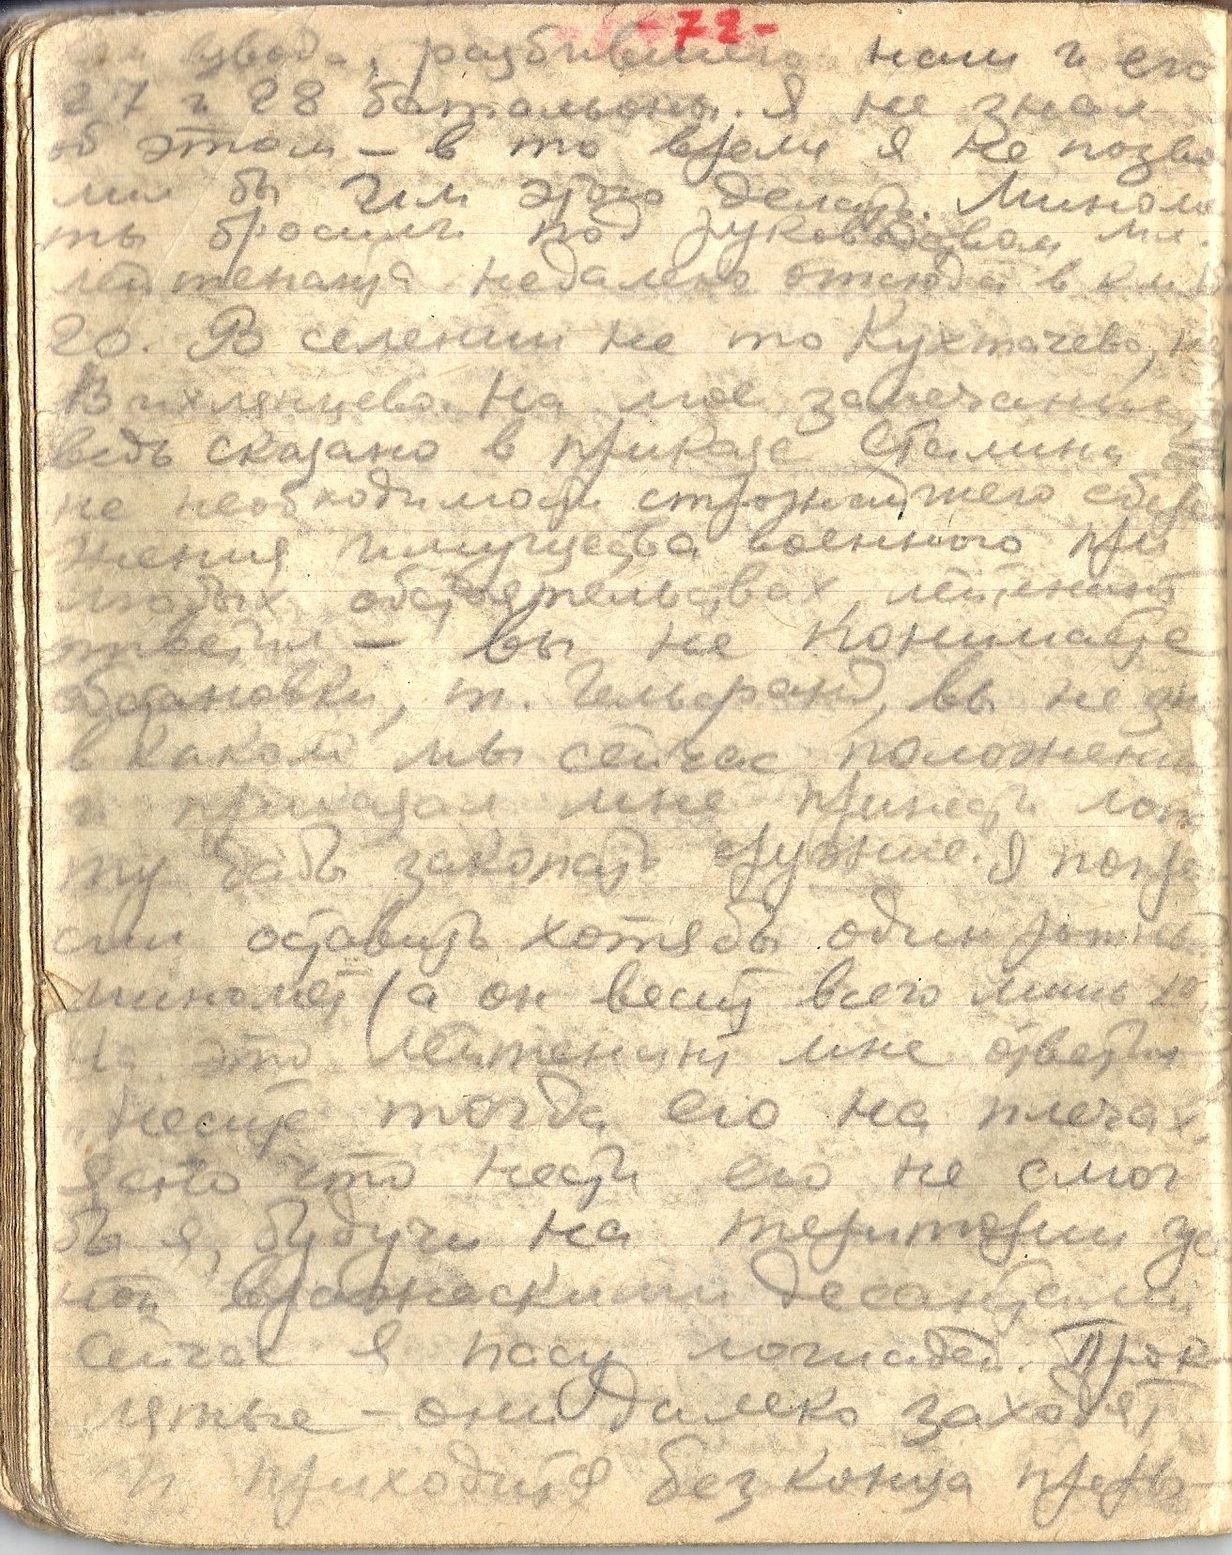 -72-
взвода, разбившего наш и его
27 и 28 батальоны. Я не знал
об этом – в то время я не позво
лил бы им этого делать. Миноме
ты бросили под руководством мл.
лейтенанта недалеко отсюда в км
20. В селении не то Кухтачево, не
Вихлянцево. На мое замечание,
ведь сказано в приказе Сталина
не необходимости строжайшего сбере
жения имущества военного при
любых обстоятельствах, лейтенант
ответил – вы не понимаете
обстановки, т. Гельфанд, вы не зн
в каком мы сейчас положении
и приказал мне принести лопа
ту дабы закопать оружие. Я попро
сил оставить хотябы один ротный
миномет (а он весит всего лишь 10
На это лейтенант мне ответил –
„несите тогда его на плечах.
Ясно что нести его не смог
бы я, будучи на територии за
той вражескими десантами
Сейчас я пасу лошадей. Прок
лятые – они далеко заходят
и приходится без конца преры-